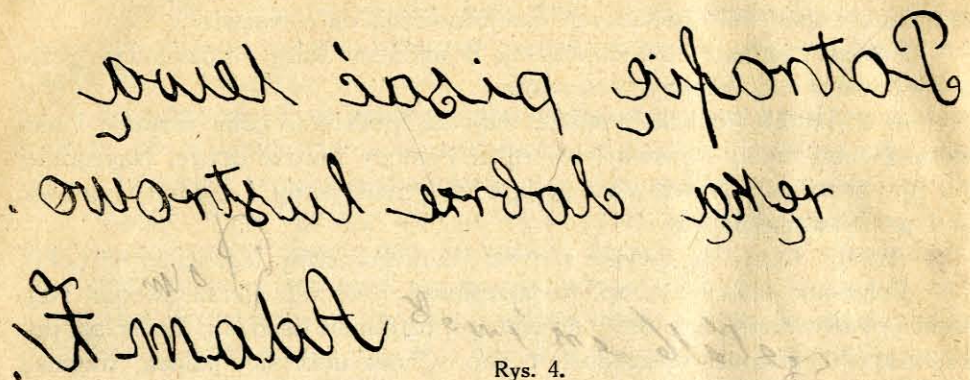 Potrafię pisać lewą
ręką dobrze lustrowo.
Adam Ż.
Rys. 4.